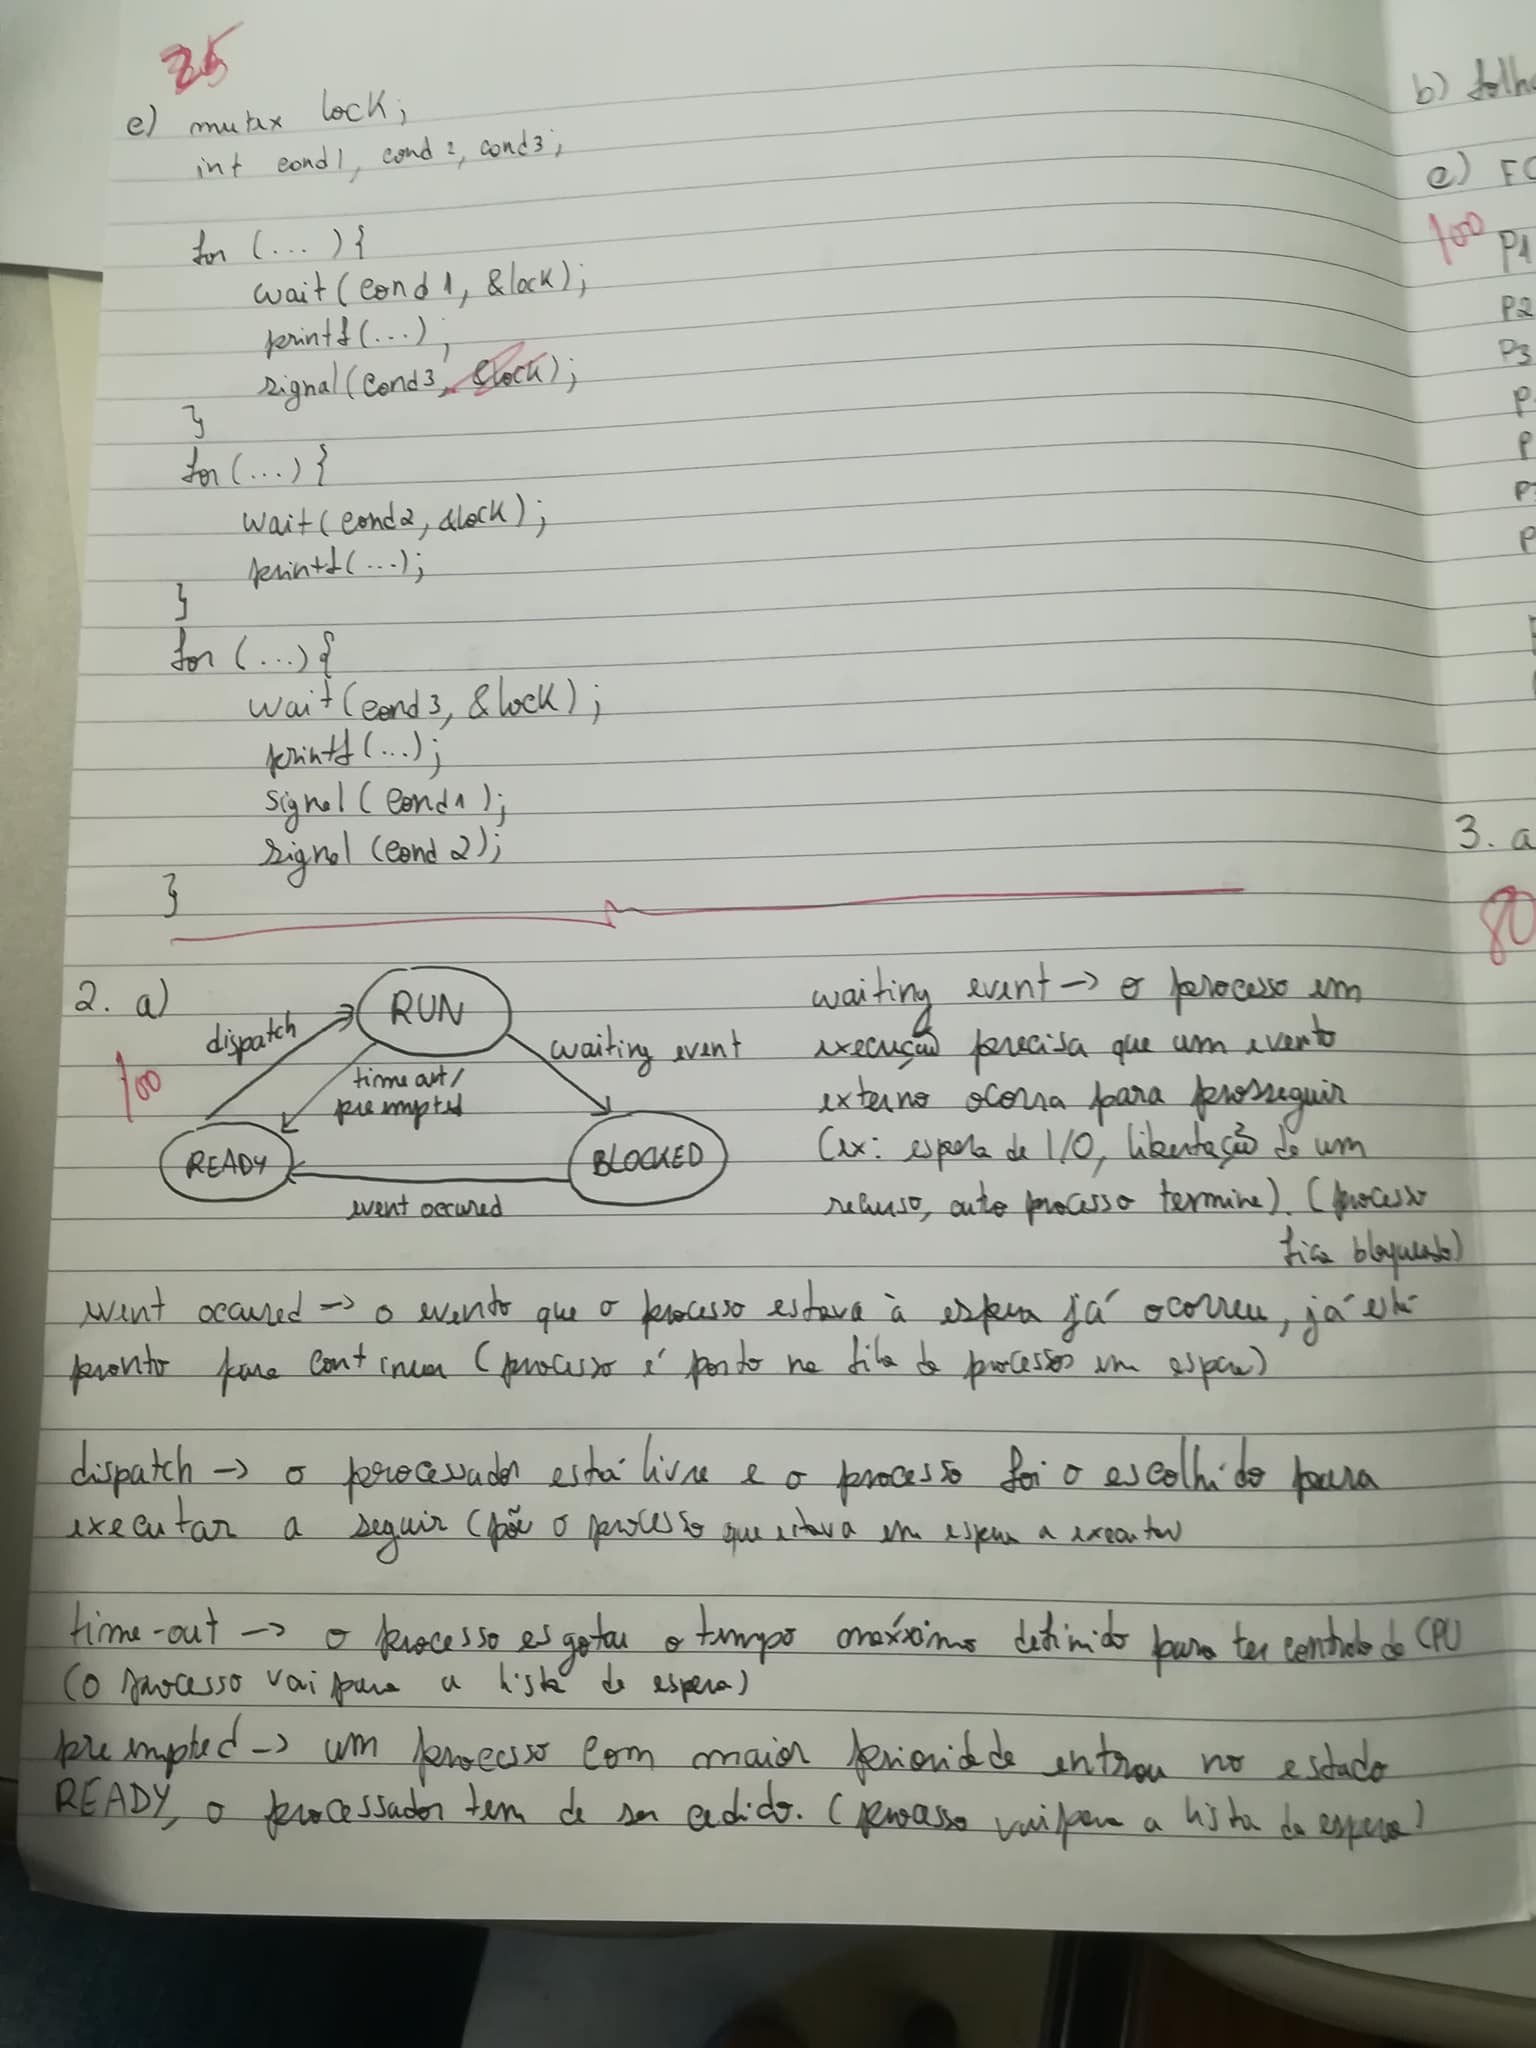 25
e) mutex lock;
int cond1, cond2, cond3;
for (...) {
wait(cond1, &lock);
printf(...);
signal(cond3, &lock);
}
for (...) {
wait(cond2, &lock);
printf(...);
}
for (...) {
wait(cond3, &lock);
printf(...);
signal(cond1);
signal(cond2);
}
2. a)
100
RUN
dispatch
time out/
preempted
waiting event
READY
BLOCKED
event occured
waiting event -> o processo em
execução precisa que um evento
externo ocorra para prosseguir
(ex: espera de I/O, libertação de um
recurso, outro processo termine). (processo
fica bloqueado)
event occured -> o evento que o processo estava à espera já ocorreu, já está
pronto para continuar (processo é posto na fila de processos em espera)
dispatch -> o processador está livre e o processo foi o escolhido para
executar a seguir (põe o processo que estava em espera a executar
time-out -> o processo esgotou o tempo máximo definido para ter controlo do CPU
(o processo vai para a lista de espera)
preempted -> um processo com maior prioridade entrou no estado
READY, o processador tem de ser cedido. (processo vai para a lista de espera)
b) folha
e) FC
100
P1
P2
P3
P
P
P
3. a
80